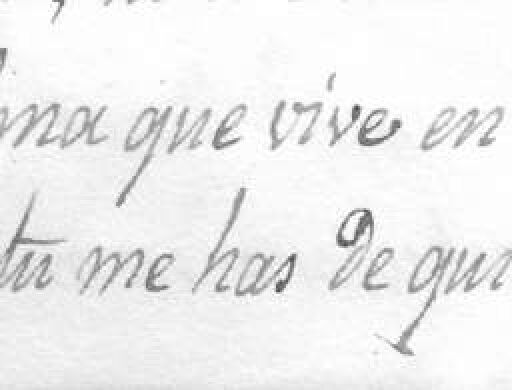 ma que vive en
tu me has de